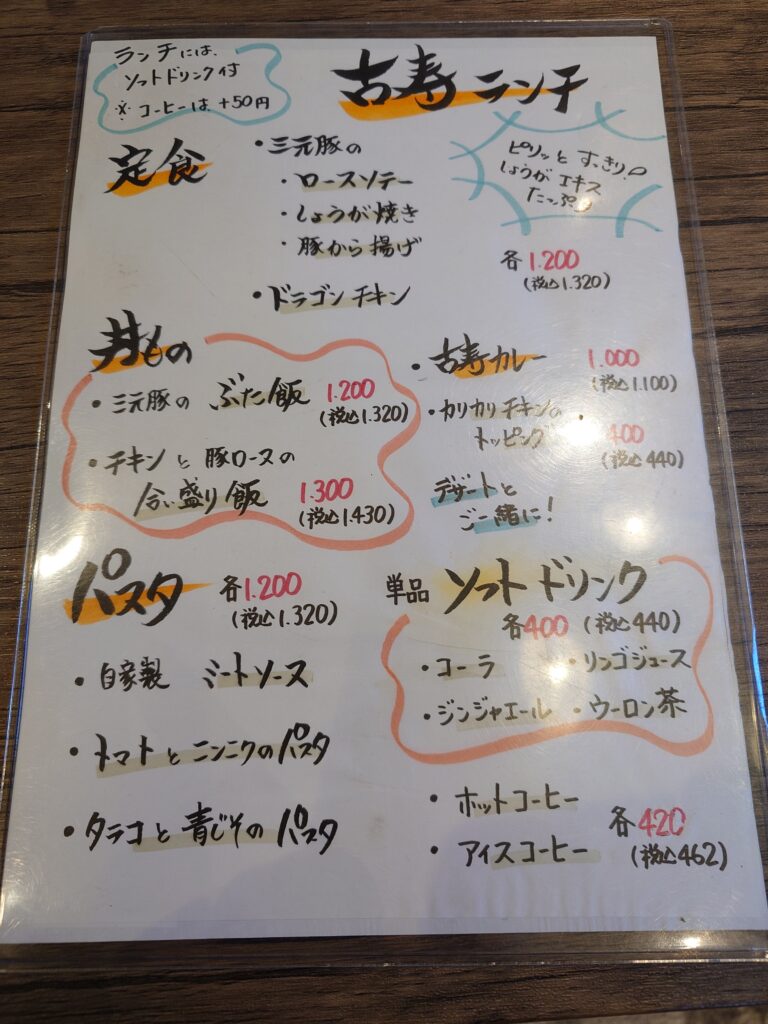 ランチには、
ソフトドリンク付
※コーヒーは +50円
古寿ランチ
定食
・三元豚の
・ロースソテー
・しょうが焼き
・豚から揚げ
・ドラゴンチキン
ピリッと すっきり!
しょうが エキス
たっぷり
各 1.200
(税込1.320)
丼もの
・三元豚の ぶた飯 1.200
(税込1.320)
・チキンと豚ロースの
合い盛り飯 1.300
(税込1.430)
・古寿カレー 1.000
(税込1.100)
・カリカリチキンの
トッピング 400
(税込440)
デザートと
ご一緒に!
パスタ 各1.200
(税込1.320)
・自家製 ミートソース
・トマトとニンニクのパスタ
・タラコと青じそのパスタ
単品 ソフトドリンク
各400 (税込440)
・コーラ ・リンゴジュース
・ジンジャエール ・ウーロン茶
・ホットコーヒー
・アイスコーヒー 各420
(税込462)